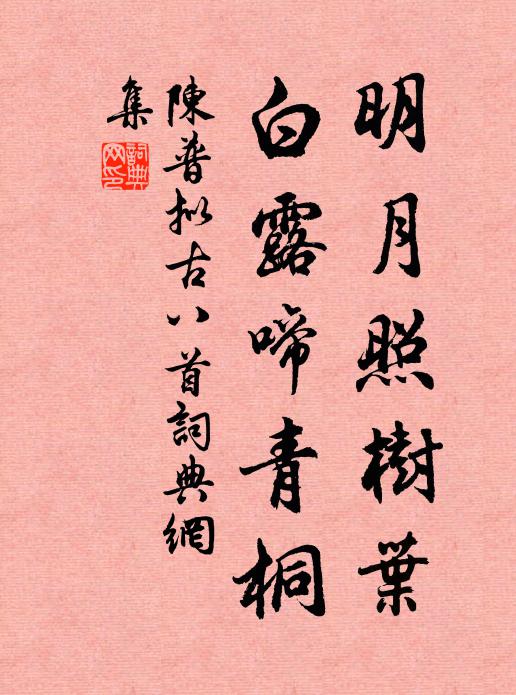 明月照樹葉
白露啼青桐
陳普拟古八首詞典網
集
詞典網印